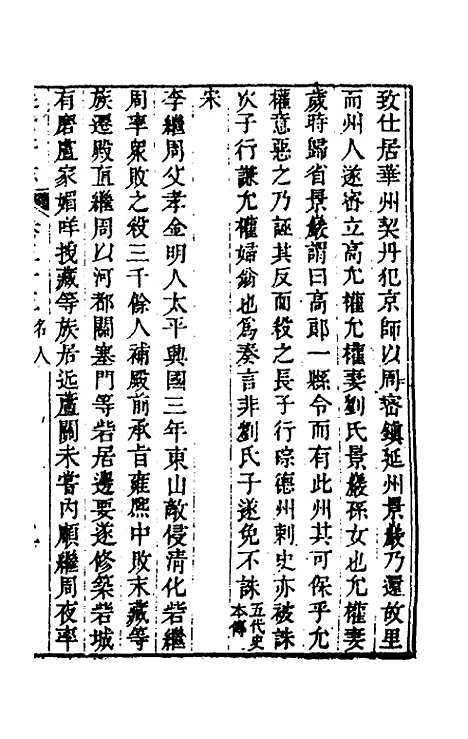 致仕居華州契丹犯京師以周密鎮延州景巖乃還故里
而州人遂密立高允權允權妻劉氏景巖孫女也允權妻
歲時歸省景巖謂曰高郎一縣令而有此州其可保乎允
權意惡之乃誣其反而殺之長子行琮德州刺史亦被誅
次子行謙允權婦翁也爲奏言非劉氏子遂免不誅五代史本傳
宋
李繼周父孝金明人太平興國三年東山敵侵清化砦繼
周率衆敗之殺三千餘人補殿前承旨雍熙中敗末藏等
族遷殿直繼周以河都關塞門等砦居邊要遂修築砦城
有磨盧家媚咩拽藏等族居近蘆關未嘗内順繼周夜率
名人